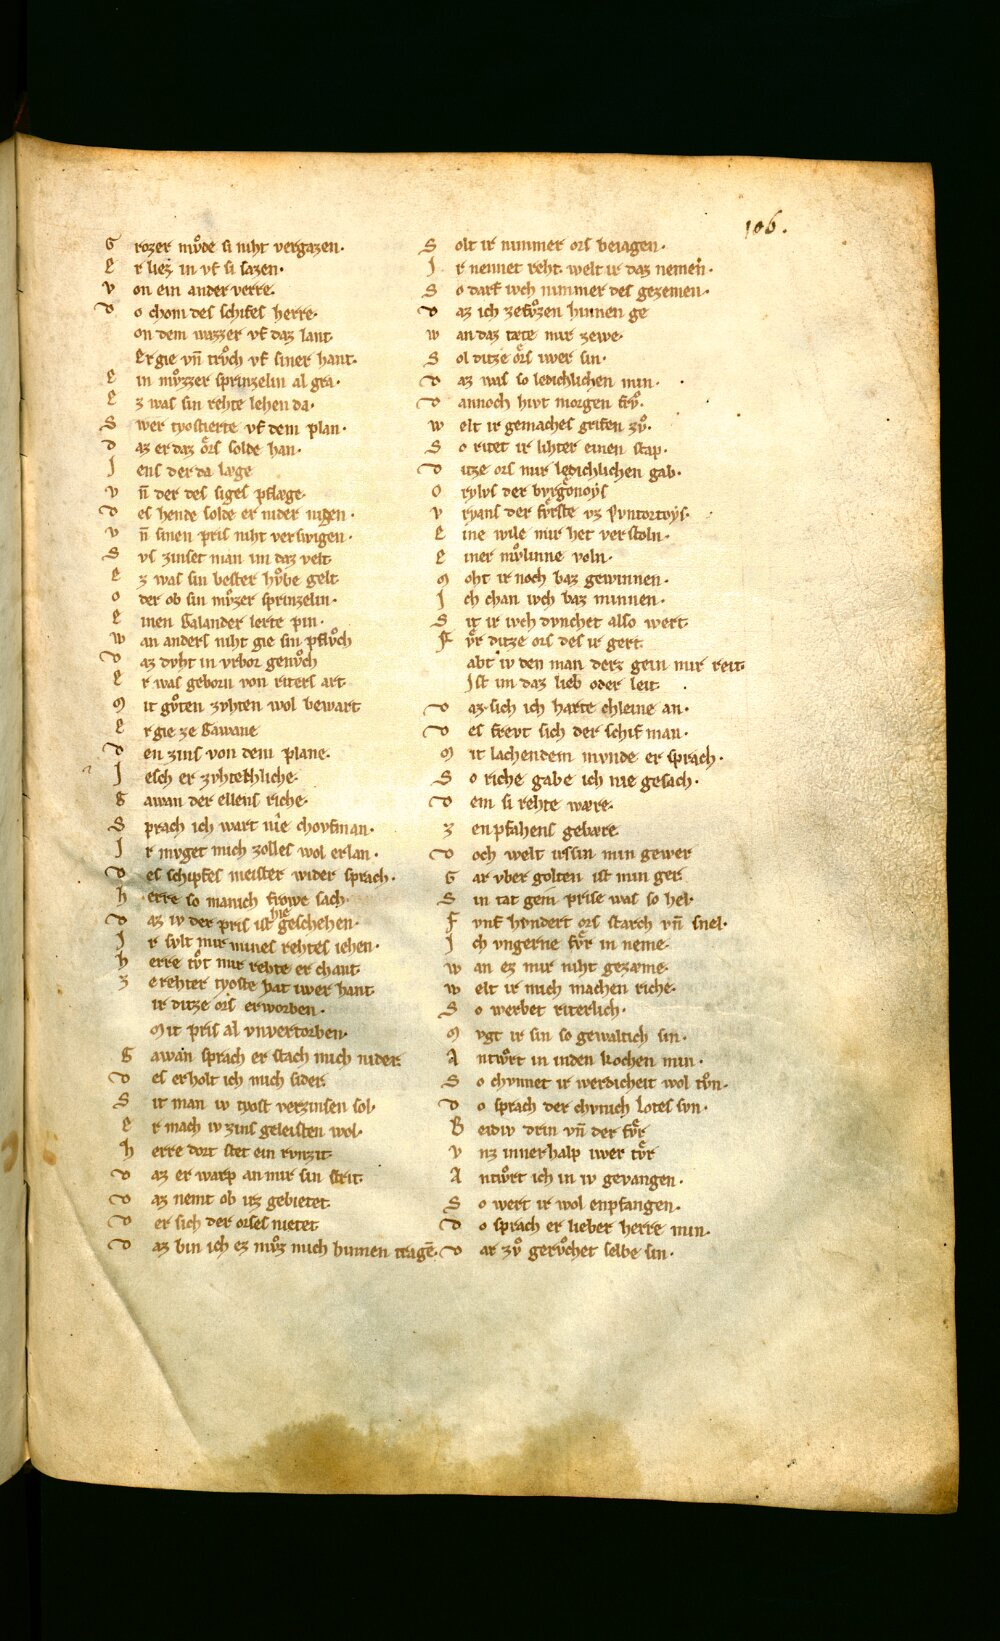 106.
G rozer mvͦde si niht vergazen·
E r liez in vf si sazen·
v on ein ander verre·
D o chom des schifes herre·
on dem wazzer vf daz lant·
Er gie vn̄ trvͦch vf siner hant·
E in mvͦzzer sprinzelin al gra·
E z was sin rehte lehen da·
S wer tyostierte vf dem plan·
D az er daz oͤrs solde han·
J ens der da læge
v n̄ der des siges pflæge·
D es hende solde er nider nigen·
v n̄ sinen pris niht verswigen·
S vs zinset man im daz velt
E z was sin bester hvͦbe gelt
O der ob sin mvͦzer sprinzelin·
E inen Galander lerte pin·
W an anders niht gie sin pflvͦch
D az dvht in vrbor genvͦch
E r was geborn von riters art
M it gvͦten zvhten wol bewart
E r gie ze Gawane
D en zins von dem plane·
J esch er zvhtekhliche·
G awan der ellens riche·
S prach ich wart nie chovfman·
J r mvget mich zolles wol erlan·
D es schiffes meister wider sprach·
H erre so manich frowe sach·
D az iv der pris ist hie geschehen·
J r svlt mir mines rehtes iehen·
H erre tvͦt mir rehte er chant
Z e rehter tyoste hat iwer hant
ir ditze ors erworben·
Mit pris al vnvertorben·
G awan sprach er stach mich nider
D es erholt ich mich sider
S it man iv tyost verzinsen sol·
E r mach iv zins geleisten wol·
H erre dort stet ein rvnzit·
D az er warp an mir sin strit
D az nemt ob irz gebietet
D er sich der orses nietet
D az bin ich ez mvͦz mich hinnen tragē·
S olt ir nimmer ors beiagen·
J r nennet reht welt ir daz nemen·
S o darf iwch nimmer des gezemen·
D az ich zefvͦzen hinnen ge
W an daz tæte mir zewe·
S ol ditze oͤrs iwer sin·
D az was so ledichlichen min·
D annoch hivt morgen frvͦ·
W elt ir gemaches grifen zvͦ·
S o ritet ir lihter einen stap·
D itze ors mir ledichlichen gab·
O rylvs der bvrgonoys
V ryans der fvͤrste vz Pvntortoys·
E ine wile mir het verstoln·
E iner mvͦlinne voln·
M oht ir noch baz gewinnen·
J ch chan iwch baz minnen·
S it ir iwch dvnchet also wert
F vͤr ditze ors des ir gert
abt iv den man derz gein mir reit
Jst im daz lieb oder leit
D az sich ich harte chleine an·
D es frevt sich der schif man·
M it lachendem mvnde er sprach·
S o riche gabe ich nie gesach·
D em si rehte wære·
Z enpfahens gebære
D och welt irs sin min gewer
G ar vber golten ist min ger
S in tat gein prise was so hel·
F vnf hvndert ors starch vn̄ snel·
J ch vngerne fvͤr in neme·
W an ez mir niht gezæme·
W elt ir mich machen riche·
S o werbet riterlich·
M vgt ir sin so gewaltich sin·
A ntwͦrt in inden kochen min·
S o chvnnet ir werdicheit wol tvͦn·
D o sprach der chvnich Lotes svn·
B eidiv drin vn̄ der fvͤr
V nz innerhalp iwer tvͤr
A ntwͦrt ich in iv gevangen·
S o wert ir wol enpfangen·
D o sprach er lieber herre min·
D ar zvͦ gervͦchet selbe sin·